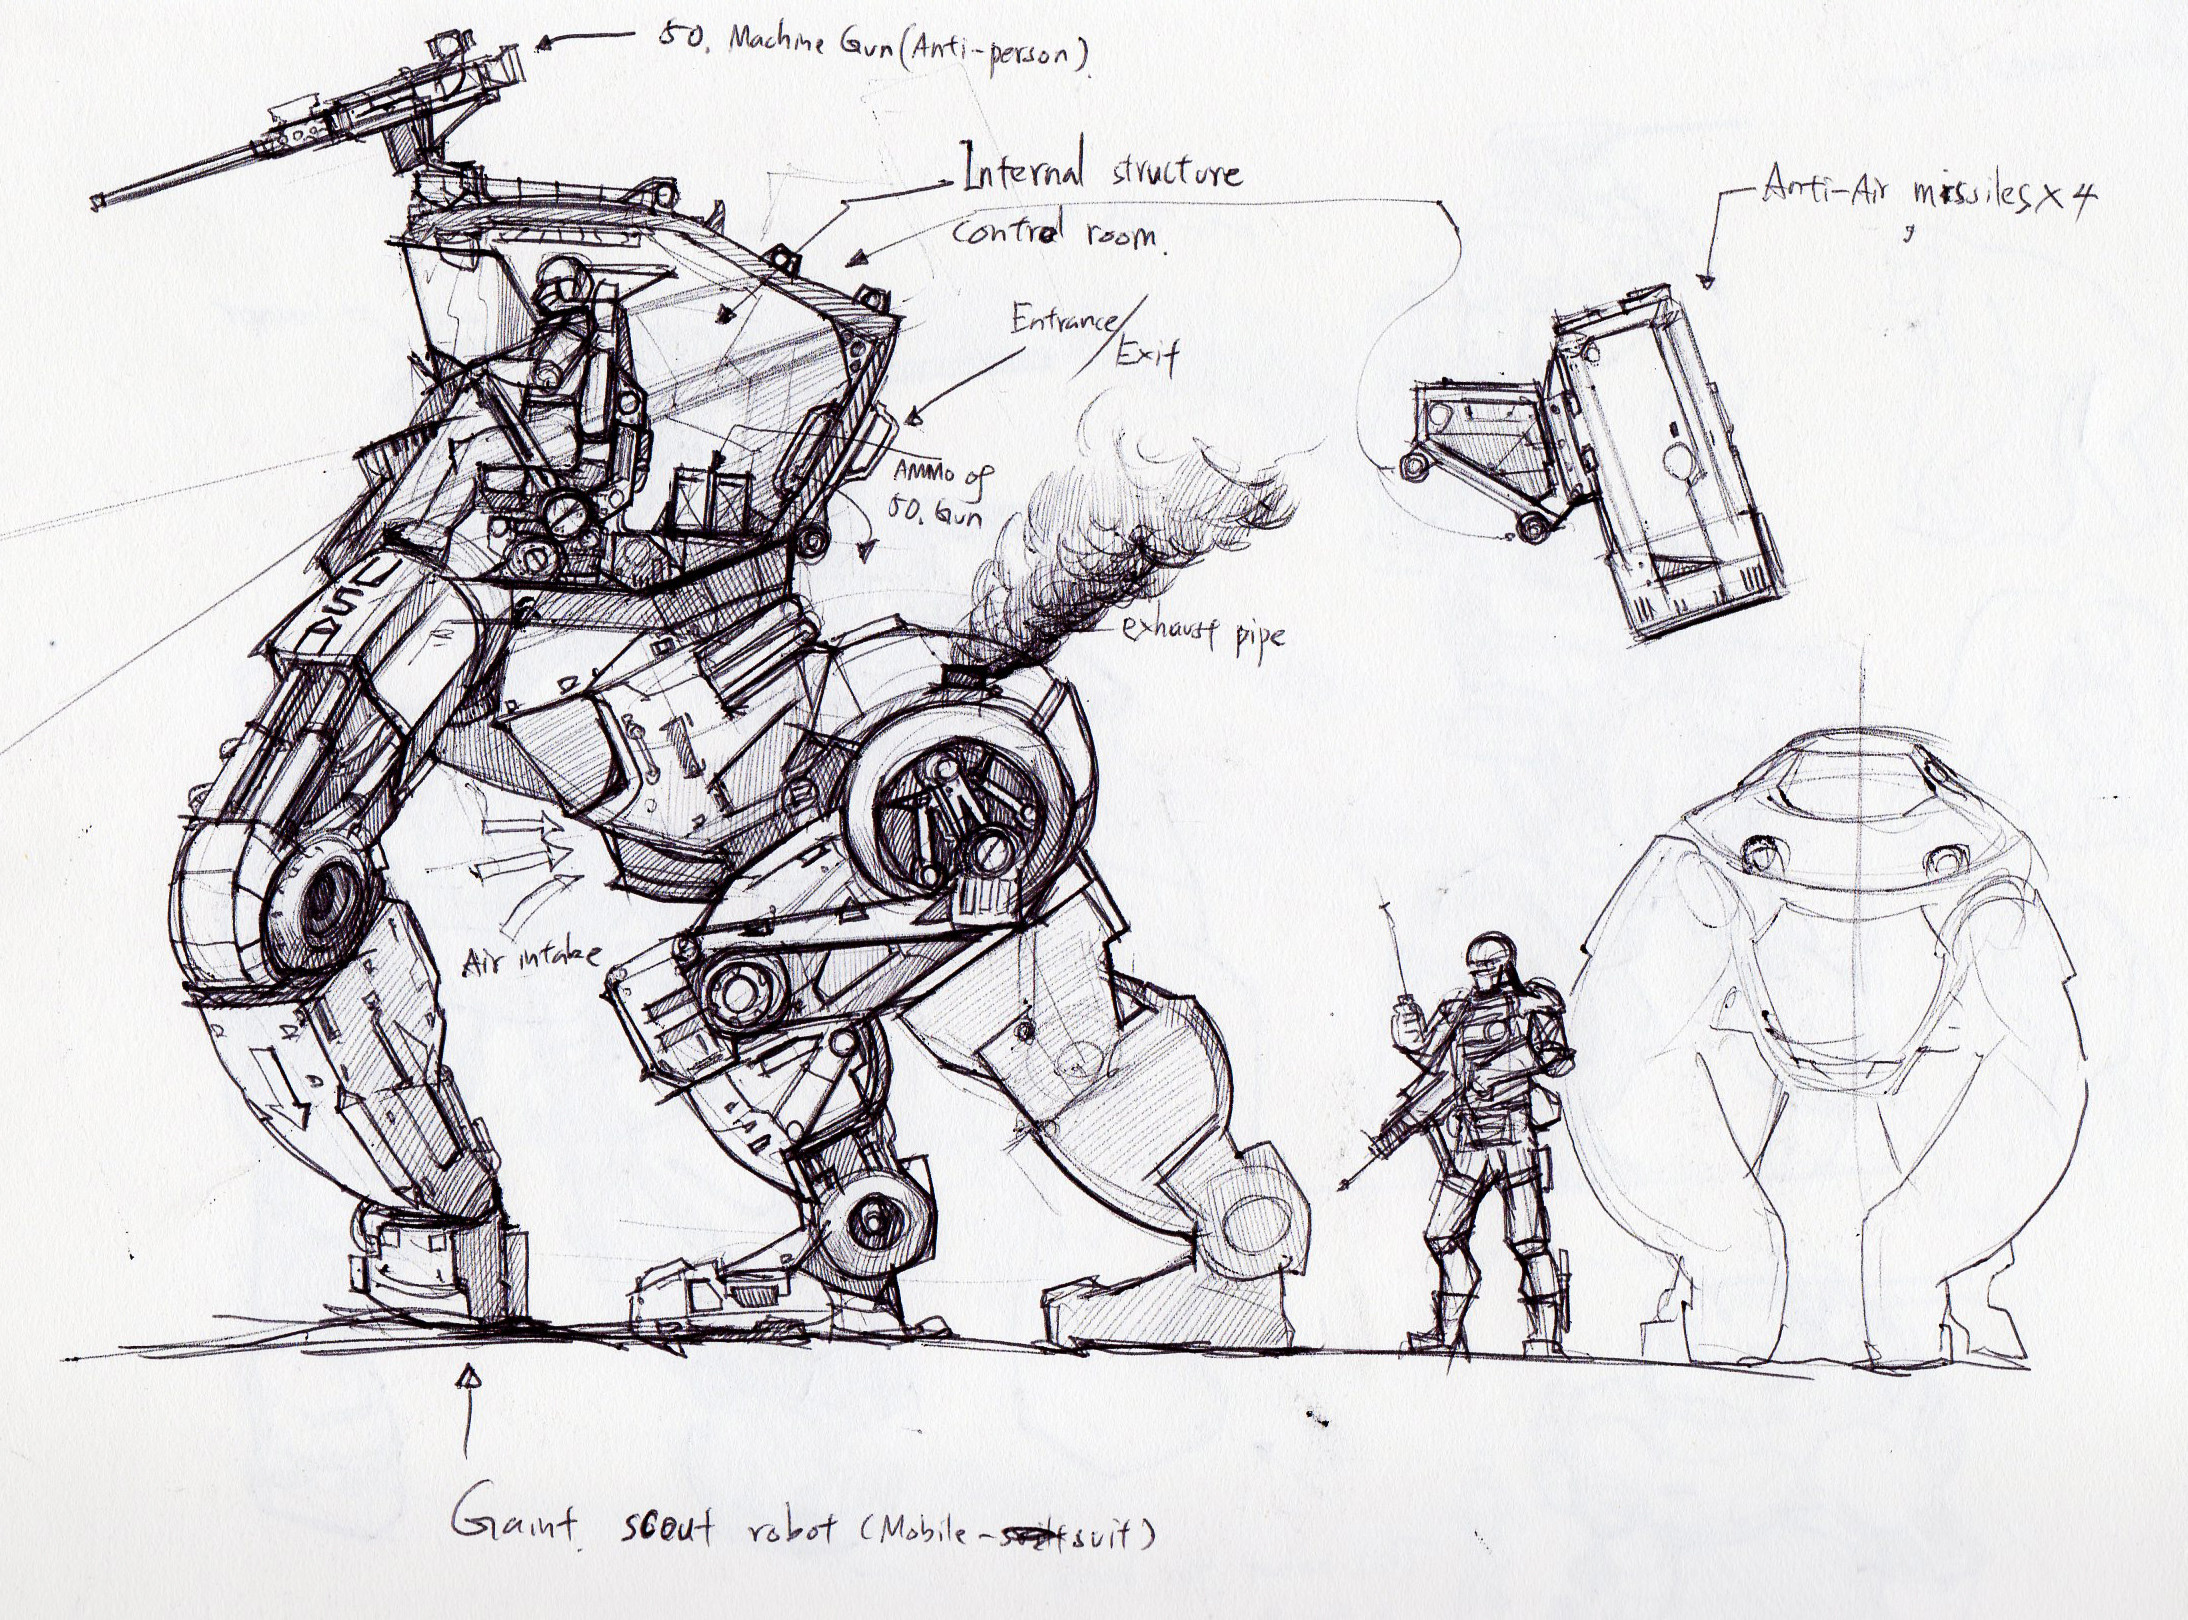 50. Machine Gun (Anti-person).
Internal structure
control room.
Anti-Air missiles x 4
Entrance/
Exit
AMMO of
50. Gun
exhaust pipe
USA
Air intake
Gaint scout robot (Mobile-suit)